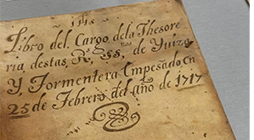 Libro del Cargo dela Thesore
ria destas Rs. SSnas de Yuiza
Y Formentera Empesado en
25 de Febrero del año de 1717